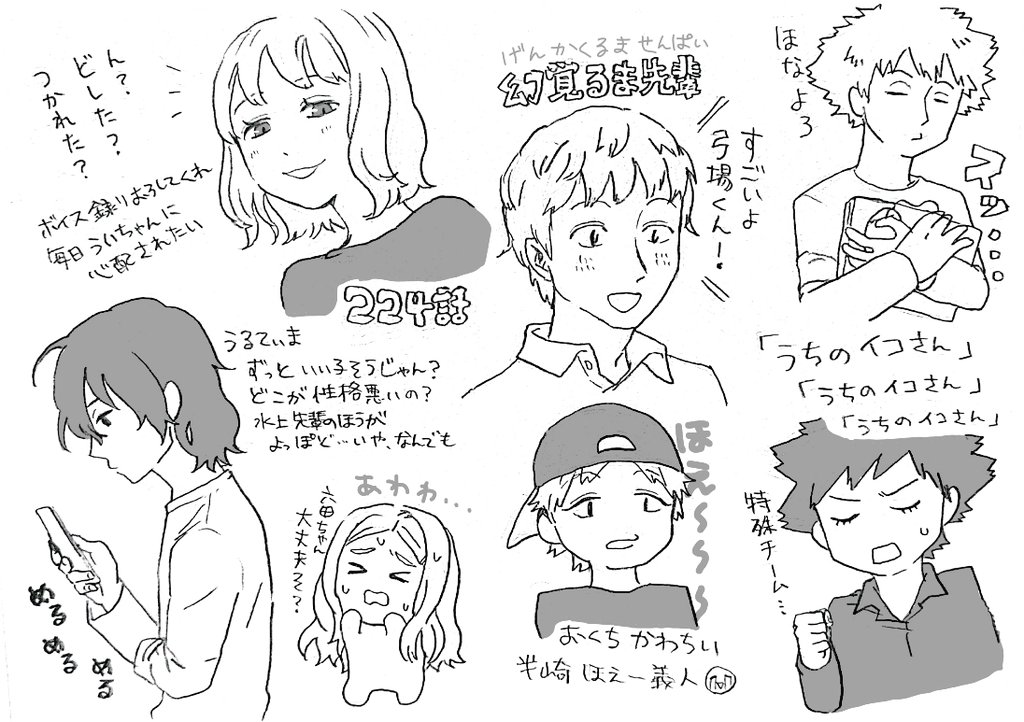 ん？
どした？
つかれた？
ボイス録りおろしてくれ
毎日ういちゃんに
心配されたい
224話
げんかくるませんぱい
幻覚るま先輩
すごいよ
弓場くん！
ほなよろ
スッ...
「うちのイコさん」
「うちのイコさん」
「うちのイコさん」
うるてぃま
ずっといい子そうじゃん？
どこが性格悪いの？
水上先輩のほうが
よっぽど…いや、なんでも
めるめるめる
あわわ...
六田ちゃん
大丈夫そ？
ほえ〜〜〜〜
おくちかわちい
半崎ほえー義人
特殊チーム…